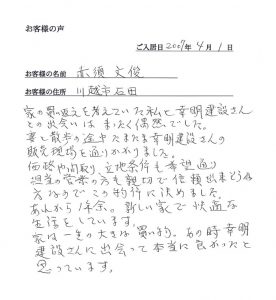 お客様の声
ご入居日 2007年 4月 1日
お客様の名前 赤須 文俊
お客様の住所 川越市石田
家の買い返えを考えていた私と幸明建設さん
との出会いは まったく偶然でした。
妻と散歩の途中たまたま幸明建設さんの
販売現場を通りかかりました。
価格や間取り、立地条件も希望通り
担当の営業の方も親切で信頼出来そうな
方なのでこの物件に決めました。
あれから1年余。新しい家で快適な
生活をしています。
家は一生の大きな買いもの。あの時幸明
建設さんに出会って本当に良かったと
思っています。